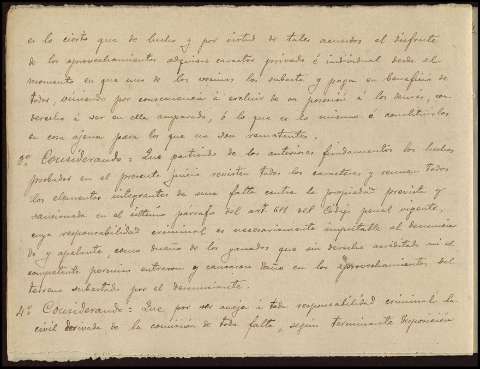 es lo cierto que de hecho y por virtud de tales acuerdos el disfrute
de los aprovechamientos adquiere caracter privado é individual desde el
momento en que uno de los vecinos los subasta y paga en beneficio de
todos, viniendo por consecuencia á excluir de su posesión á los demás, con
derecho á ser en ella amparado, ó lo que es lo mismo á constituirlos
en cosa ajena para los que no son rematantes.
Considerando: Que partiendo de los anteriores fundamentos los hechos
probados en el presente juicio revisten todos los caracteres y reunen todos
los elementos integrantes de una falta contra la propiedad prevista y
sancionada en el último párrafo del artº 611 del Código penal vigente,
cuya responsabilidad criminal es necesariamente imputable al denuncia
do y apelante, como dueño de los ganados que sin derecho acreditado ni el
competente permiso entraron y causaron daño en los aprovechamientos del
terreno subastado por el denunciante.
4º Considerando: Que por ser aneja á toda responsabilidad criminal la
civil derivada de la comisión de toda falta, según terminante disposición